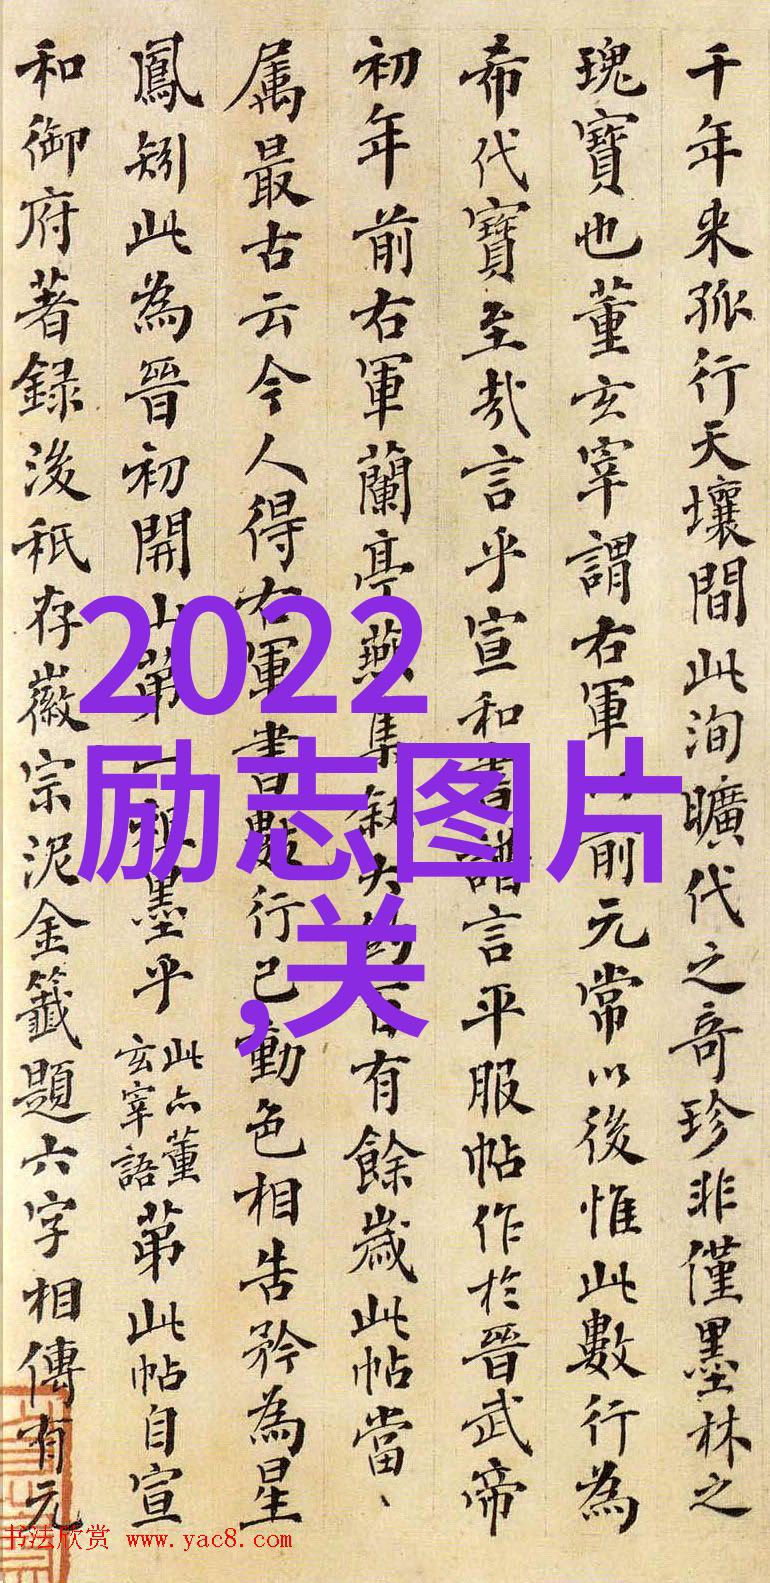 千年来孤行天壤間此洵曠代之奇珍非僅墨林之
瑰寶也董玄宰謂右軍以前元常以後惟此數行為
希代寶至哉言乎宣和書譜言平服帖作於晉武帝
初年前右軍蘭亭燕集叙大約百有餘歲此帖當、
属最古云今人得右軍書數行已動色相告矜為星
鳳矧此為晉初開山第一祖墨乎此亦董玄宰語第此帖自宣
和御府著録後秖存徽宗泥金籤題六字相傳有元
2022
励志图片
,关
书法欣赏 www.yac8.com